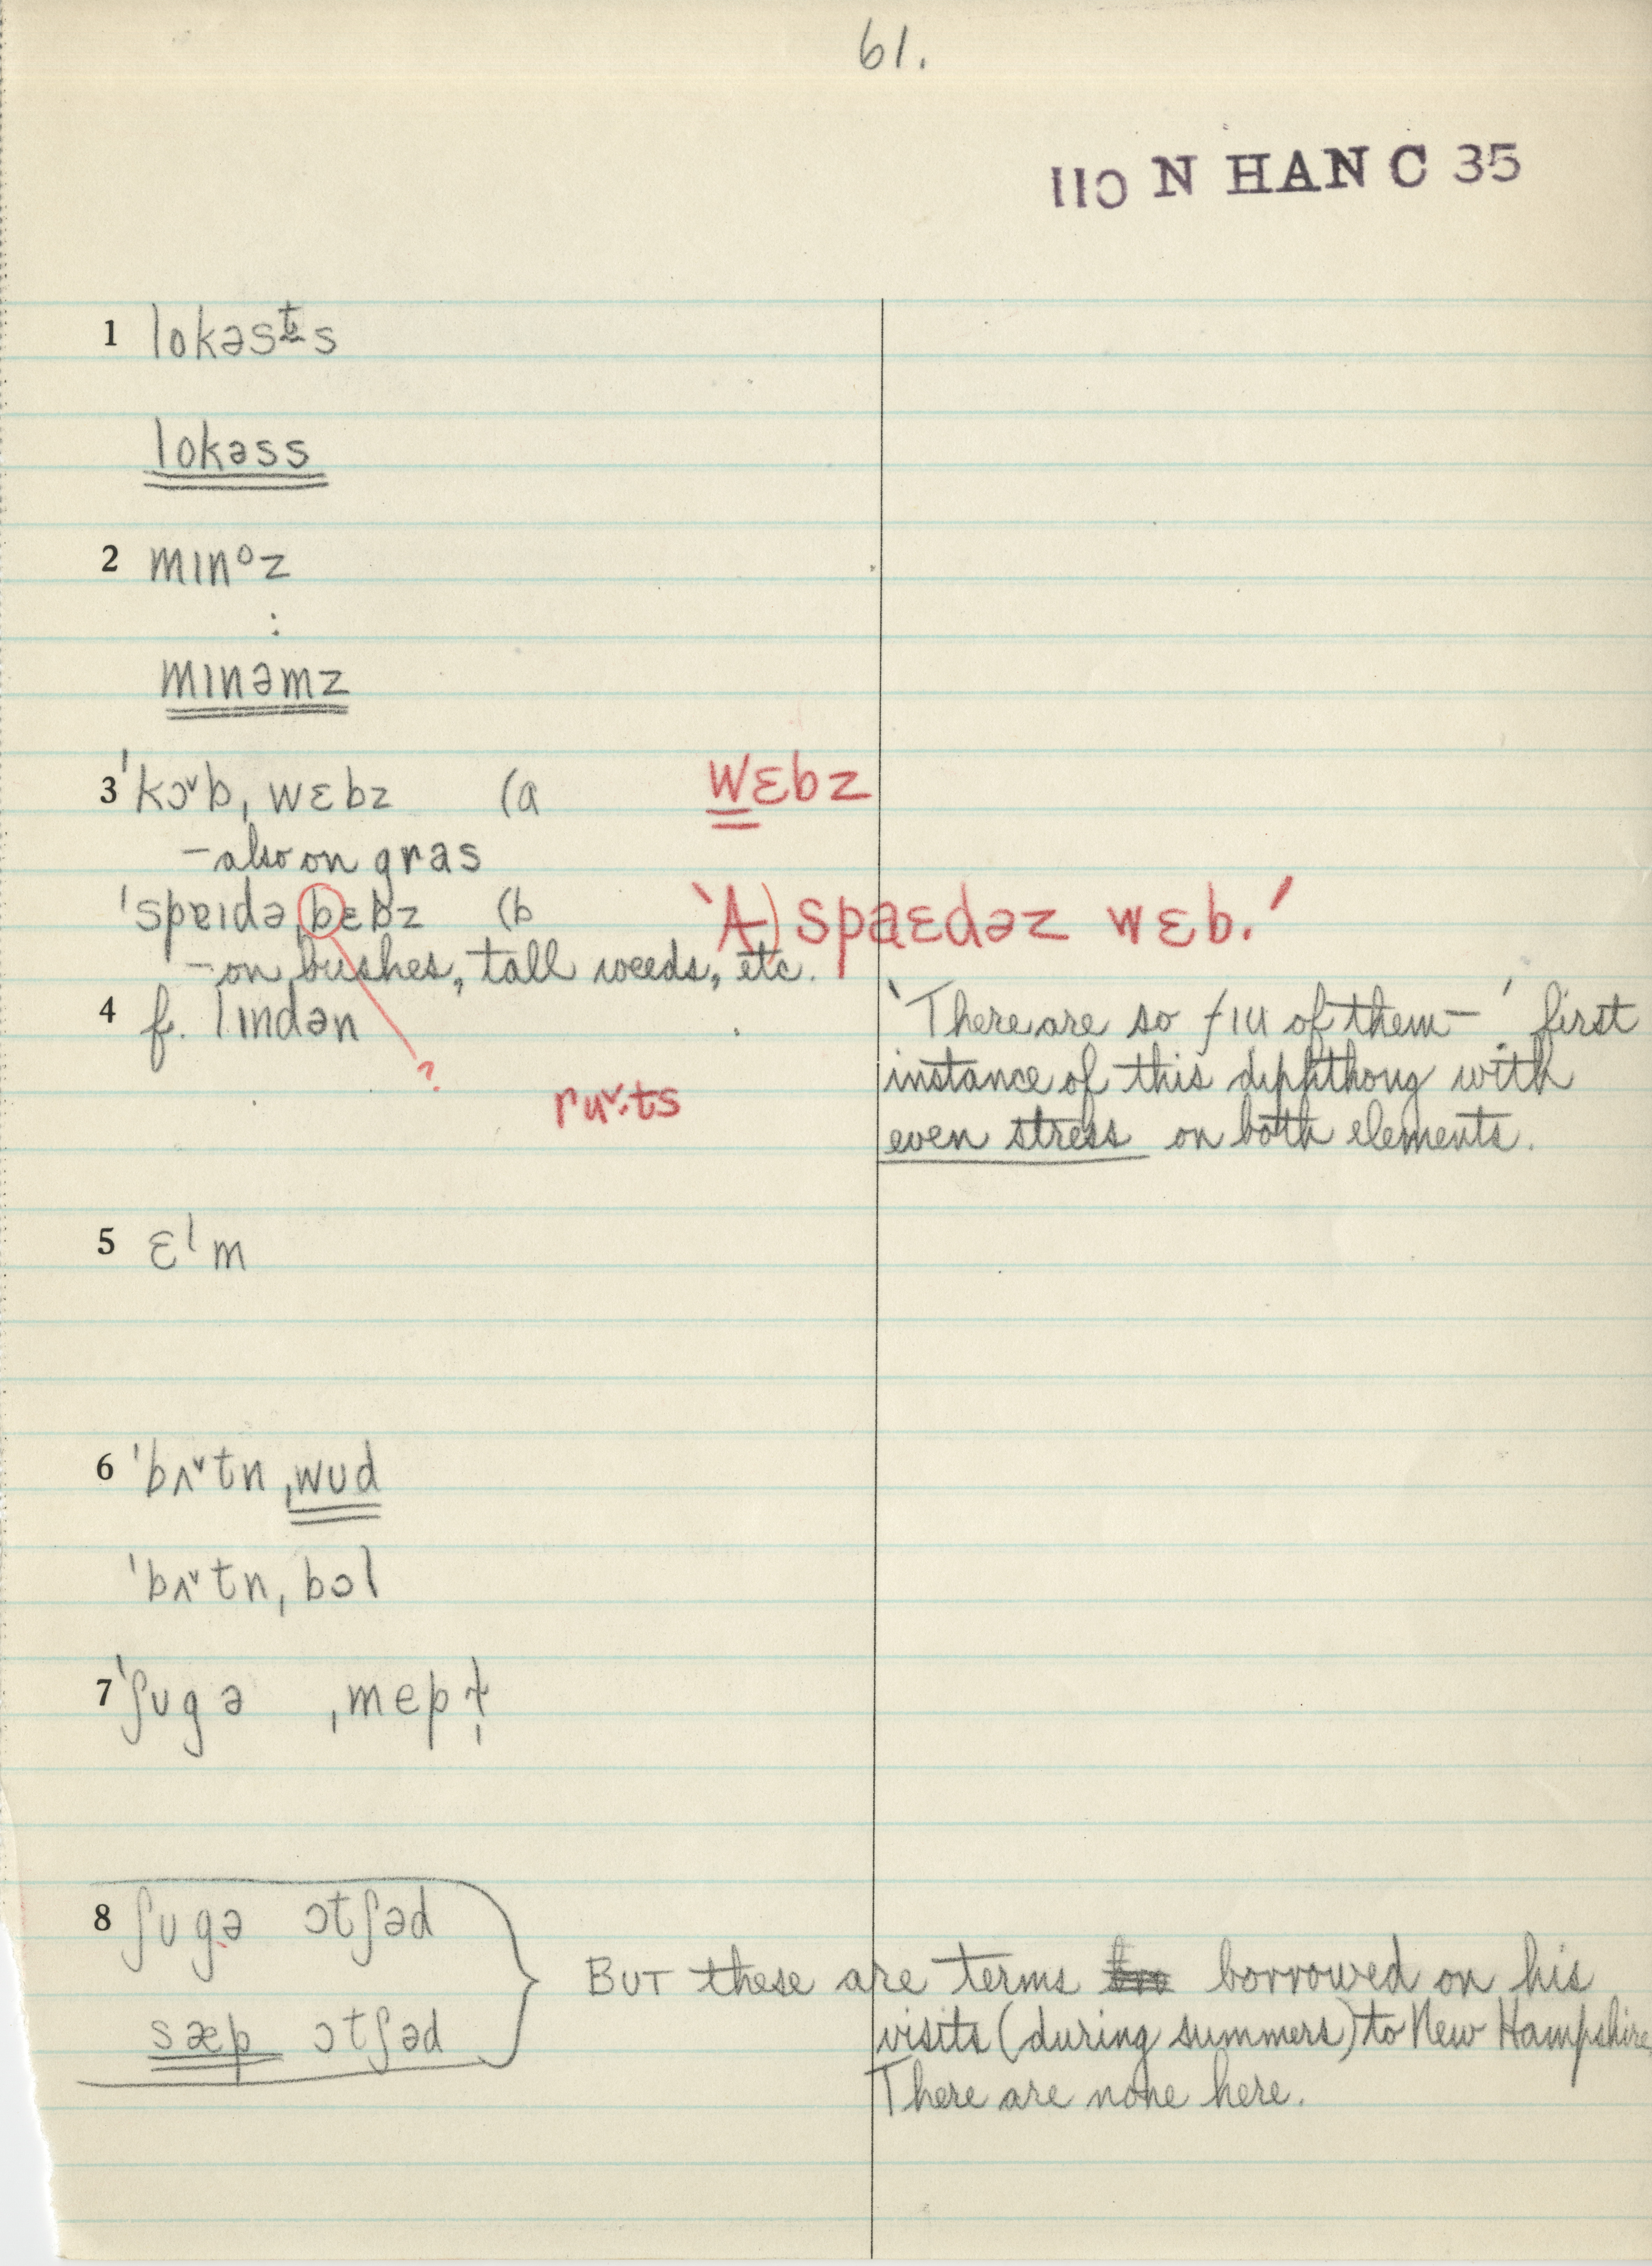 61.
110 N HAN C 35
1 lokəsts
lokəss
2 mɪnᵒz
:
mɪnəmz
3 ˈkɔ˅b, wɛbz (a wɛbz
– also on gras
ˈspɐɪdə ˌbɛbz (b 'A) spaɛdəz wɛb.'
– on bushes, tall weeds, etc.
4 f. lɪndən 'There are so fɪu of them –' first
? instance of this diphthong with
ru˅ts
even stress on both elements.
5 ɛˡm
6 ˈbʌ˅tn ˌwud
ˈbʌ˅tn ˌbɔl
7 ˈʃugə ˌmepɫ̩
8 ʃugə ɔtʃəd
BUT these are terms borrowed on his
sæp ɔtʃəd visits (during summers) to New Hampshire.
There are none here.